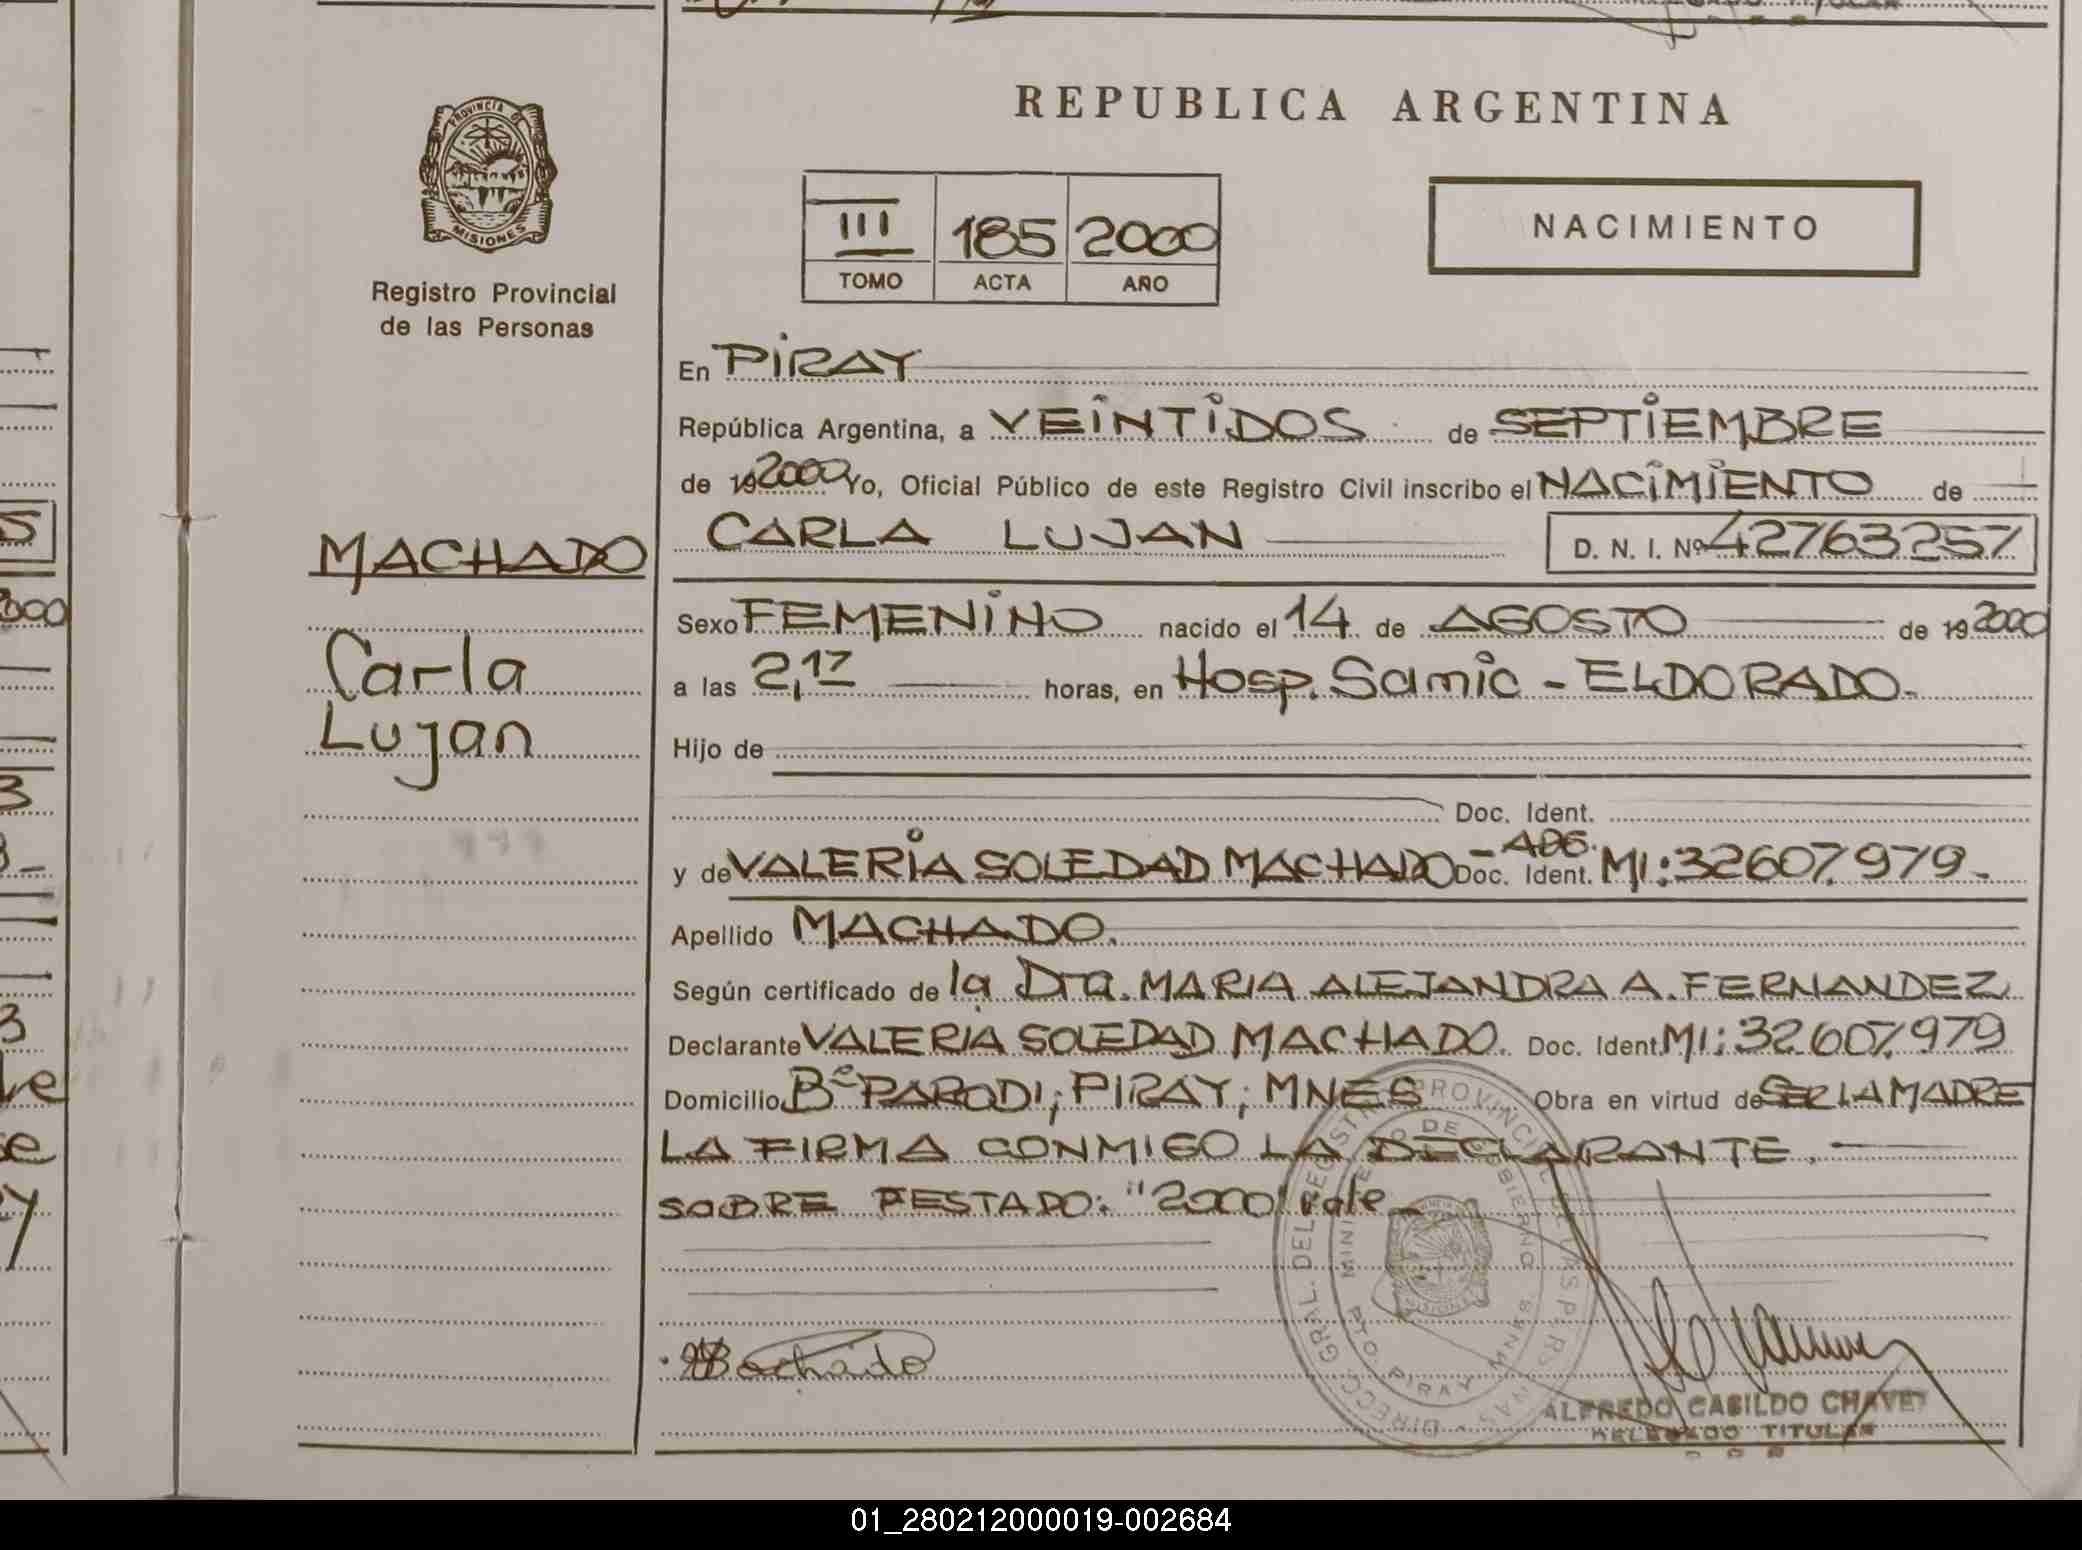 REPUBLICA ARGENTINA
PROVINCIA DE
MISIONES
Registro Provincial
de las Personas
III 185 2000
TOMO ACTA AÑO
NACIMIENTO
En PIRAY
República Argentina, a VEINTIDOS de SEPTIEMBRE
de 19 2000 Yo, Oficial Público de este Registro Civil inscribo el NACIMIENTO de
CARLA LUJAN D. N. I. Nº 42763257
MACHADO
Carla
Lujan
Sexo FEMENINO nacido el 14 de AGOSTO de 19 2000
a las 2,17 horas, en Hosp. Samic - ELDORADO.
Hijo de
Doc. Ident.
y de VALERIA SOLEDAD MACHADO - ARG. Doc. Ident. MI: 32607.979-
Apellido MACHADO.
Según certificado de la Dra. MARIA ALEJANDRA A. FERNANDEZ
Declarante VALERIA SOLEDAD MACHADO. Doc. Ident. MI: 32.607.979
Domicilio Bº PARODI; PIRAY; MNES Obra en virtud de SER LA MADRE
LA FIRMA CONMIGO LA DECLARANTE.
SOBRE TESTADO: "2000" vale
Machado
DIRECC. GRAL. DEL REGISTRO PROVINCIAL DE LAS PERSONAS
MINISTERIO DE GOBIERNO
PTO. PIRAY MNES.
MISIONES
ALFREDO CASILDO CHAVEZ
DELEGADO TITULAR
01_280212000019-002684